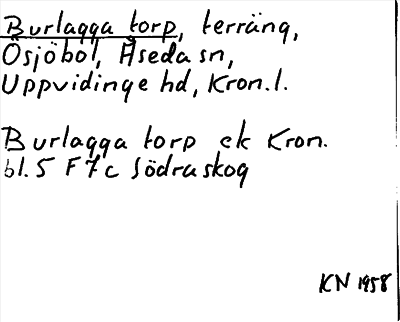 Burlagga torp, terräng,
Ösjöbol, Åseda sn,
Uppvidinge hd, Kron. l.
Burlagga torp ek Kron.
bl. 5 F 7 c Södraskog
KN 1958